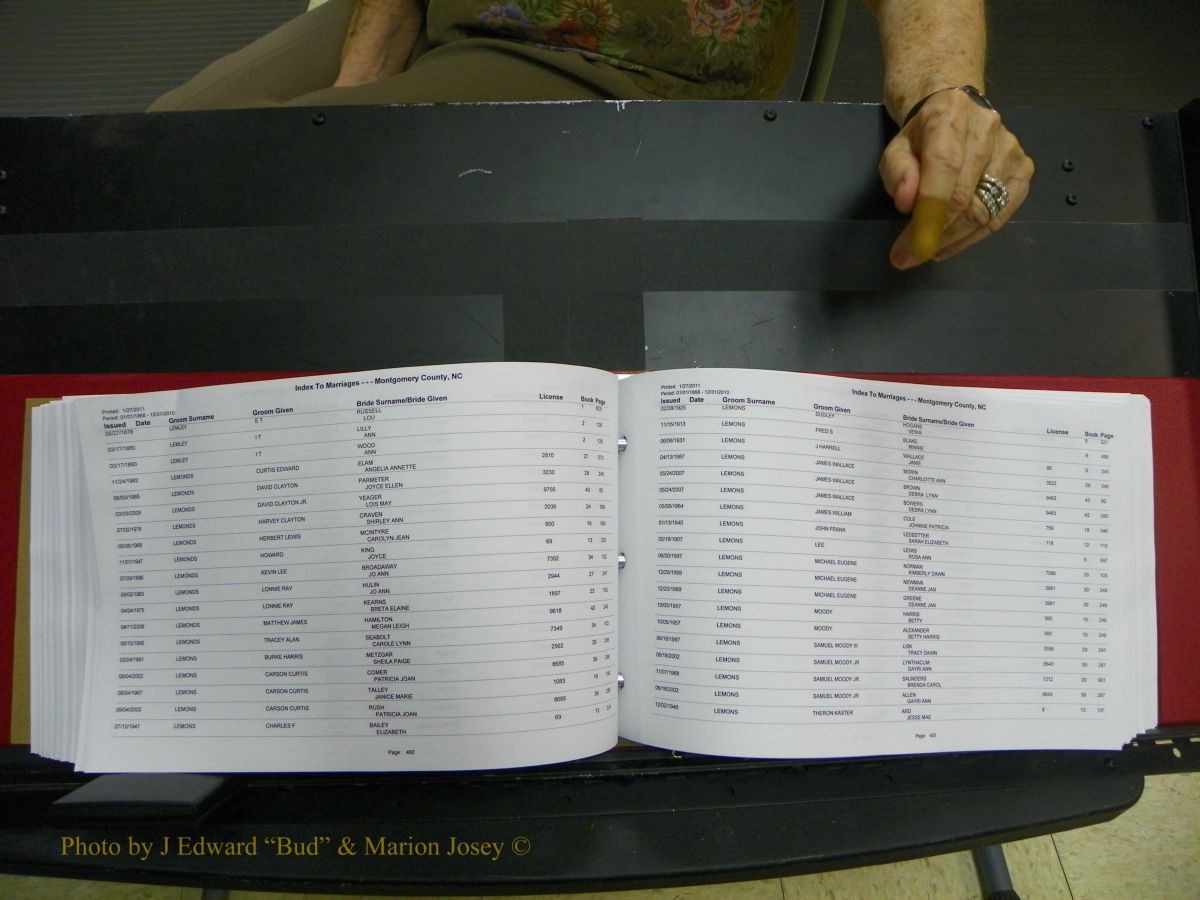 Index To Marriages - - - Montgomery County, NC
Printed: 1/27/2011
Period: 01/01/1868 - 12/31/2010
Issued Date Groom Surname Groom Given Bride Surname/Bride Given License Book Page
LEMLEY E T RUSSELL 1
LOU
03/17/1880 LEMLEY I T LILLY 2
ANN
03/17/1880 LEMLEY I T WOOD 2
ANN
11/24/1982 LEMONDS CURTIS EDWARD ELAM 2810 27
ANGELIA ANNETTE
06/03/1985 LEMONDS DAVID CLAYTON PARMETER 3230 28
JOYCE ELLEN
03/09/2009 LEMONDS DAVID CLAYTON JR. YEAGER 9756 43
LOIS MAY
07/02/1976 LEMONDS HARVEY CLAYTON CRAVEN 2036 24
SHIRLEY ANN
LEMONDS HERBERT LEWIS MCINTYRE 950 19
CAROLYN JEAN
11/01/1947 LEMONDS HOWARD KING 89 13
JOYCE
07/29/1996 LEMONDS KEVIN LEE BROADAWAY 7392 34
JO ANN
09/02/1983 LEMONDS LONNIE RAY HULIN 2944 27
JO ANN
04/04/1975 LEMONDS LONNIE RAY KEARNS 1897 23
BRETA ELAINE
04/11/2008 LEMONDS MATTHEW JAMES HAMILTON 9618 42
MEGAN LEIGH
LEMONDS TRACEY ALAN SEABOLT 7349 34
CAROLE LYNN
03/24/1981 LEMONS BURKE HARRIS METZGAR 2562
SHEILA PAIGE
09/04/2002 LEMONS CARSON CURTIS COMER 8685 39
PATRICIA JOAN
08/04/1967 LEMONS CARSON CURTIS TALLEY 1083
JANICE MARIE
09/04/2002 LEMONS CARSON CURTIS RUSH 8685 39
PATRICIA JOAN
07/12/1947 LEMONS CHARLES F BAILEY 69 13
ELIZABETH
Page: 492
Index To Marriages - - - Montgomery County, NC
Printed: 1/27/2011
Period: 01/01/1868 - 12/31/2010
Issued Date Groom Surname Groom Given Bride Surname/Bride Given License Book Page
02/28/1925 LEMONS DUDLEY HOGANS
VENIA
11/15/1913 LEMONS FRED S BLAKE
MINNIE
06/06/1931 LEMONS J HARRELL WALLACE
JANIE
04/13/1987 LEMONS JAMES WALLACE MORIN 3523 29 240
CHARLOTTE ANN
05/24/2007 LEMONS JAMES WALLACE BROWN 9483 42
DEBRA LYNN
05/24/2007 LEMONS JAMES WALLACE BOWERS 9483 42
DEBRA LYNN
05/09/1964 LEMONS JAMES WILLIAM COLE 769 18
JOHNNIE PATRICIA
01/13/1940 LEMONS JOHN FRANK LEDBETTER 118 12 110
SARAH ELIZABETH
05/18/1907 LEMONS LEE LEWIS
ROSA ANN
06/20/1997 LEMONS MICHAEL EUGENE NORMAN 7586 35
KIMBERLY DAWN
12/20/1989 LEMONS MICHAEL EUGENE NEWMAN 3981 30 249
DEANNE JAN
12/20/1989 LEMONS MICHAEL EUGENE GREENE 3981 30 249
DEANNE JAN
10/05/1957 LEMONS MOODY HARRIS 382 16 249
BETTY
10/05/1957 LEMONS MOODY ALEXANDER 382 16 249
BETTY HARRIS
06/18/1987 LEMONS SAMUEL MOODY III LISK 3556 29 241
TRACY DAWN
06/18/2002 LEMONS SAMUEL MOODY JR LYNTHACUM 8643 39 287
GAYRI ANN
11/07/1968 LEMONS SAMUEL MOODY JR SAUNDERS 1212 20
BRENDA CAROL
06/18/2002 LEMONS SAMUEL MOODY JR ALLEN 8643 39 287
GAYRI ANN
12/02/1946 LEMONS THERON KASTER ARD 8 13 137
JESSE MAE
Page: 493
Photo by J Edward “Bud” & Marion Josey ©